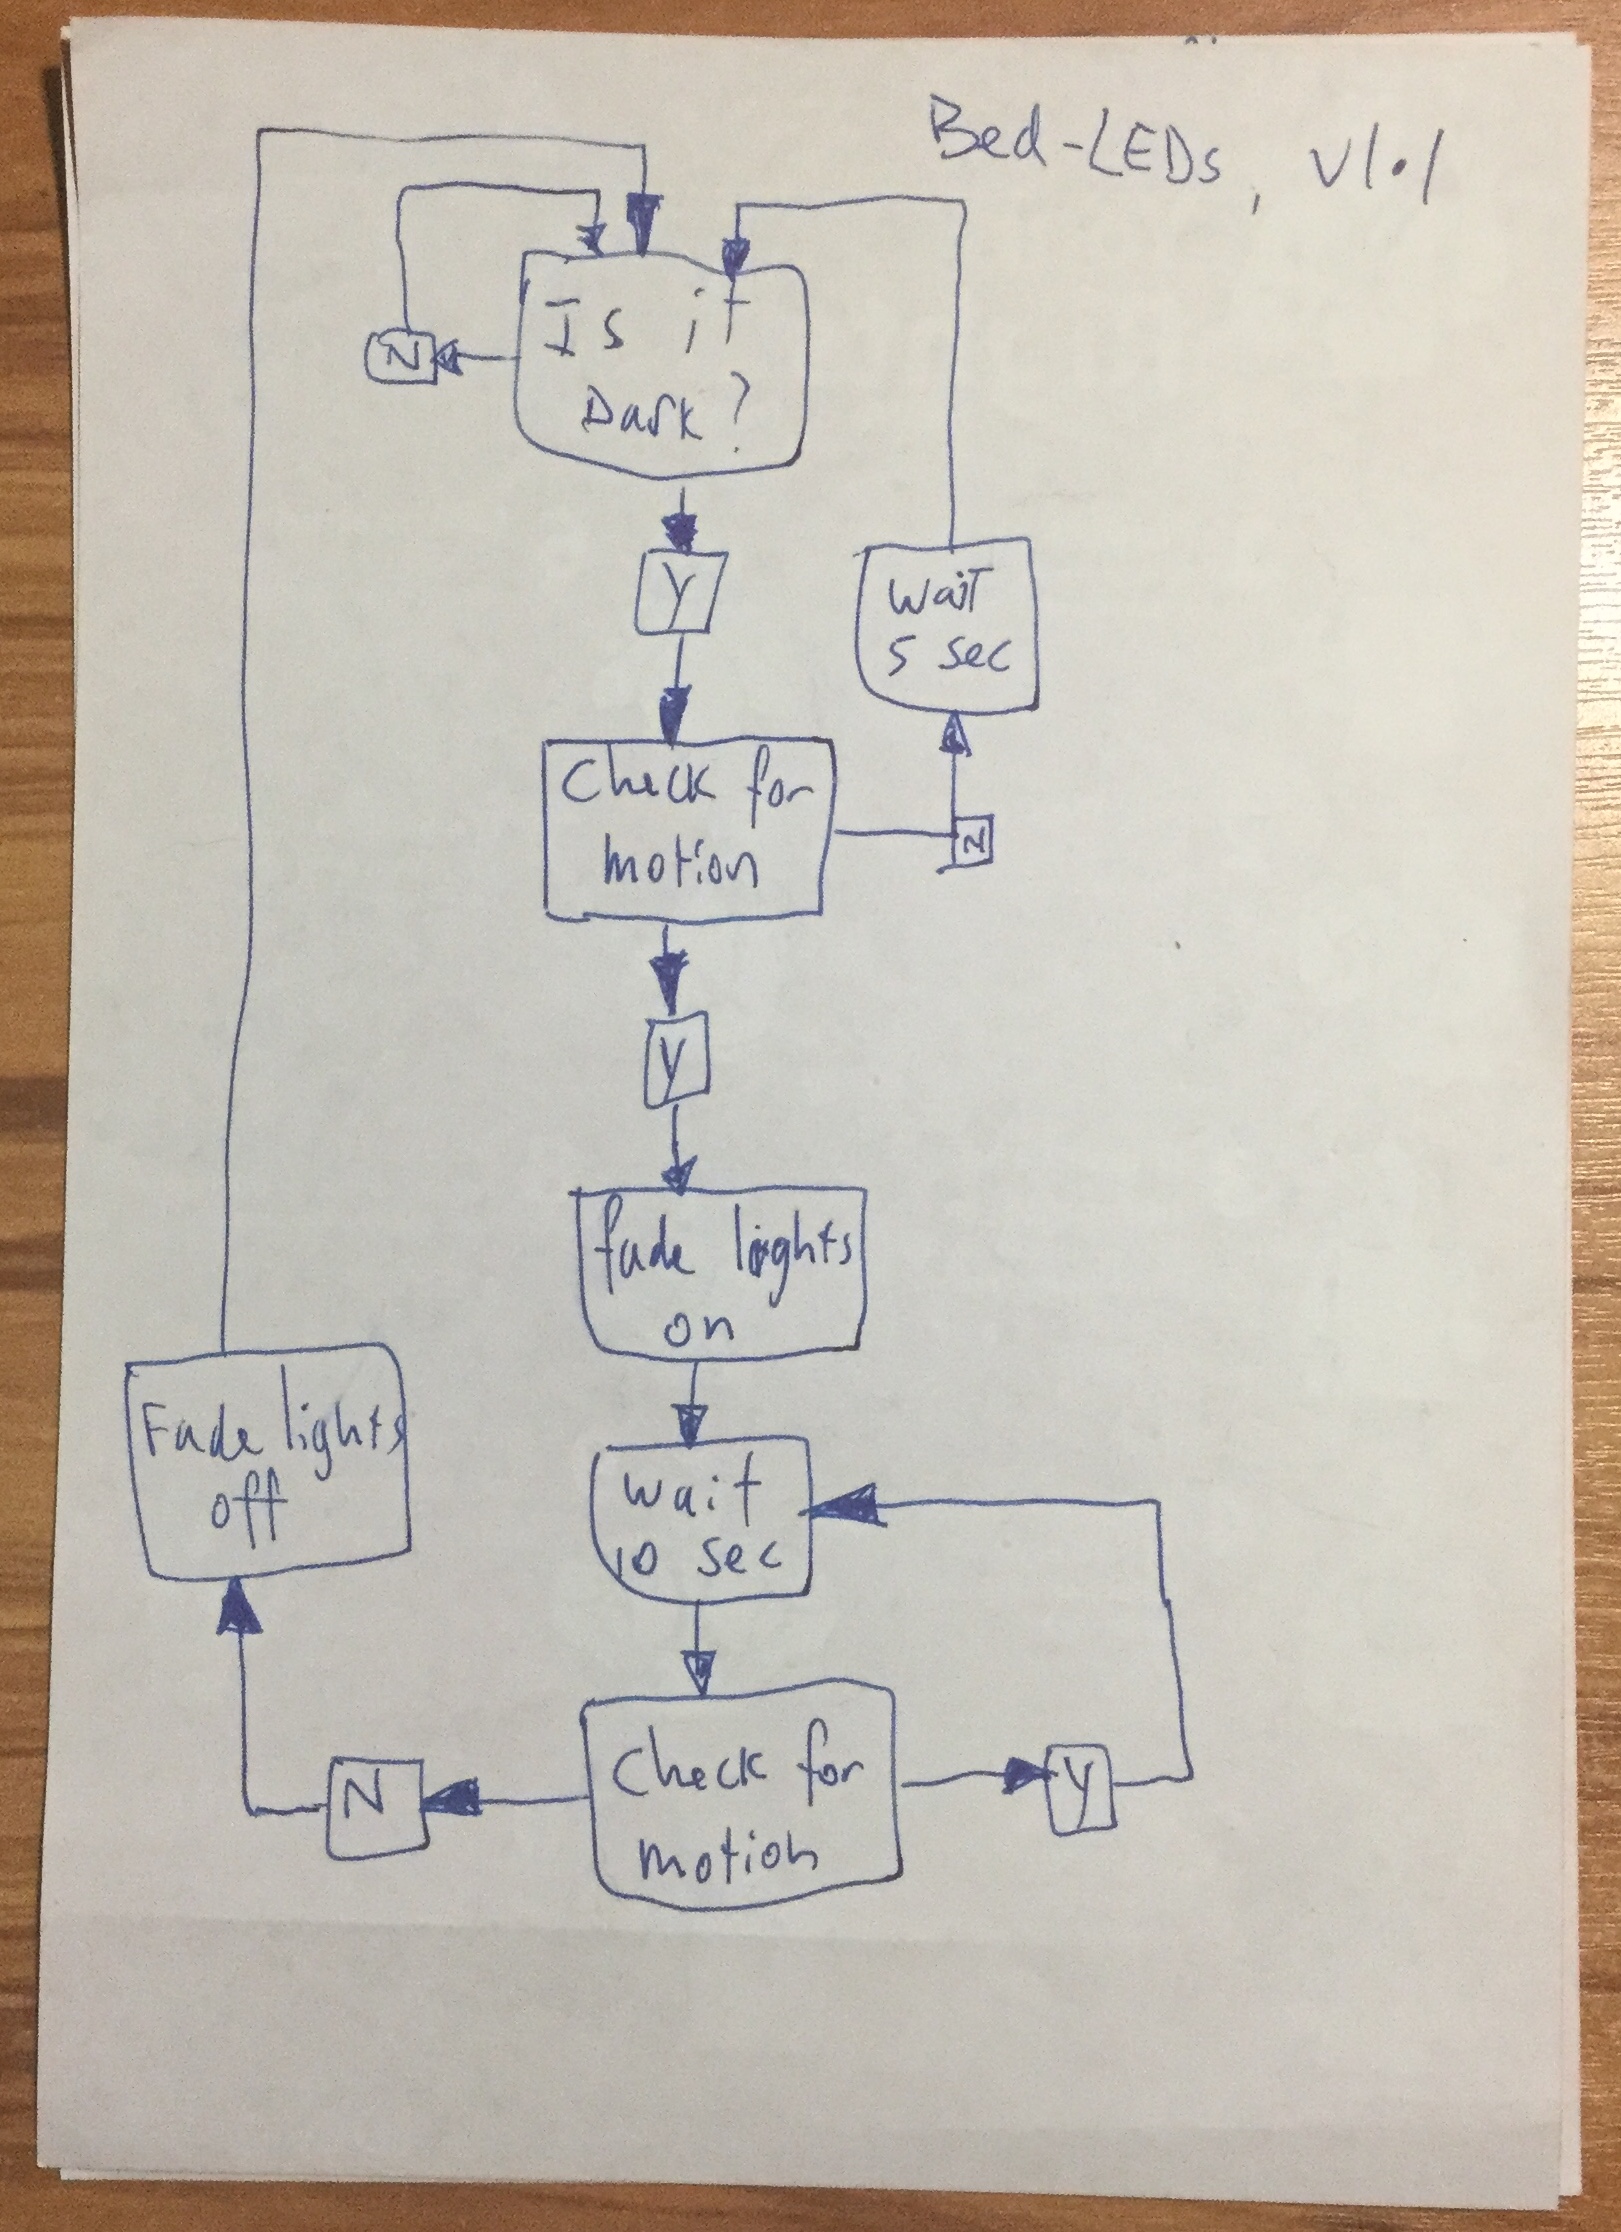 Bed-LEDs, v1.1
Is it
Dark?
N
Y
Wait
5 sec
Check for
motion
N
Y
fade lights
on
Fade lights
off
wait
10 sec
Check for
motion
N
Y